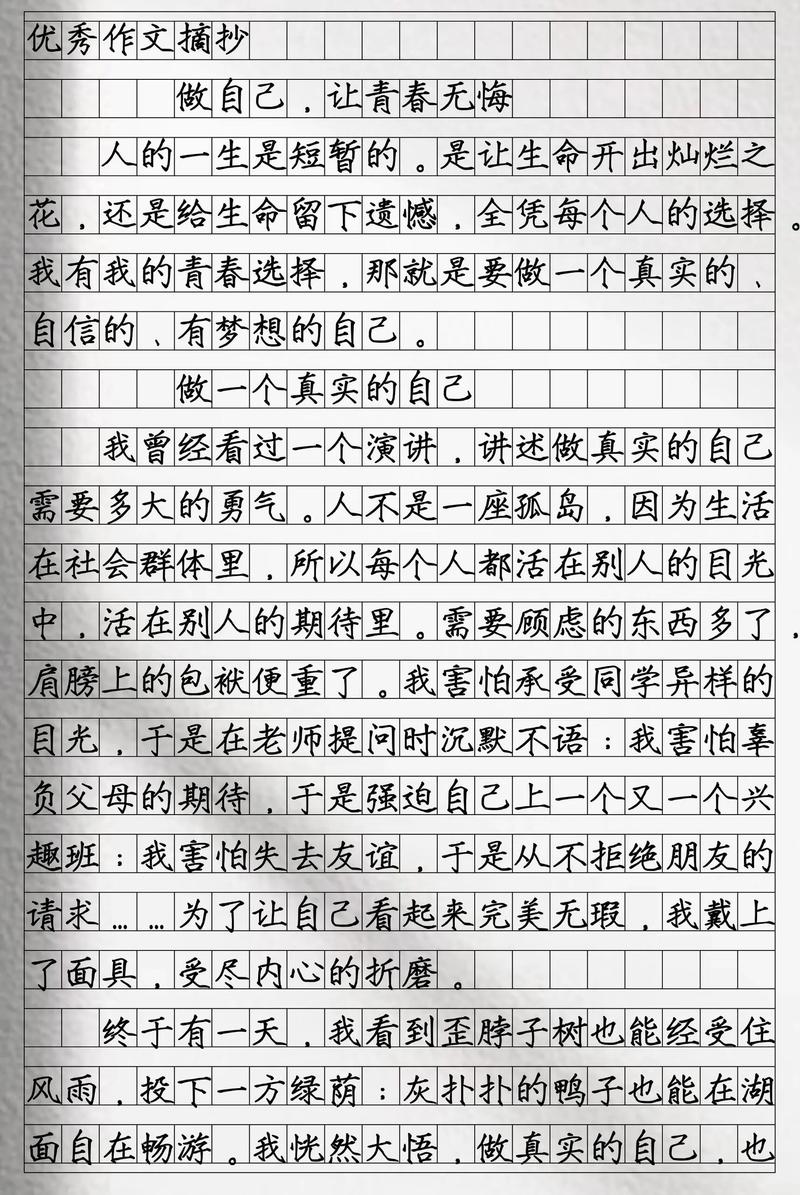 优秀作文摘抄
做自己，让青春无悔
人的一生是短暂的。是让生命开出灿烂之
花，还是给生命留下遗憾，全凭每个人的选择。
我有我的青春选择，那就是要做一个真实的、
自信的、有梦想的自己。
做一个真实的自己
我曾经看过一个演讲，讲述做真实的自己
需要多大的勇气。人不是一座孤岛，因为生活
在社会群体里，所以每个人都活在别人的目光
中，活在别人的期待里。需要顾虑的东西多了，
肩膀上的包袱便重了。我害怕承受同学异样的
目光，于是在老师提问时沉默不语：我害怕辜
负父母的期待，于是强迫自己上一个又一个兴
趣班：我害怕失去友谊，于是从不拒绝朋友的
请求……为了让自己看起来完美无瑕，我戴上
了面具，受尽内心的折磨。
终于有一天，我看到歪脖子树也能经受住
风雨，投下一方绿荫：灰扑扑的鸭子也能在湖
面自在畅游。我恍然大悟，做真实的自己，也